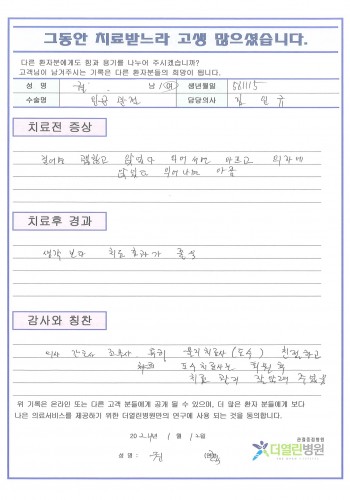 그동안 치료받느라 고생 많으셨습니다.
다른 환자분에게도 힘과 용기를 나누어 주시겠습니까?
고객님이 남겨주시는 기록은 다른 환자분들의 희망이 됩니다.
성 명 남 / 여 생년월일 561115
수술명 담당의사 김
치료전 증상
걸어가면 괜찮고 앉았다 아프고
앉았다 일어나면 아픔
치료후 경과
생각 보다 치료 효과가 좋음
감사와 칭찬
의사 간호사 물리치료사 (도수) 친절하고
도수치료사는 퇴원 후
치료 관리 주었음
위 기록은 온라인 또는 다른 고객 분들에게 공개 될 수 있으며, 더 많은 환자 분들에게 보다
나은 의료서비스를 제공하기 위한 더열린병원만의 연구에 사용 되는 것을 동의합니다.
년 1 월 12일
성 명 :
관절중점병원
더열린병원